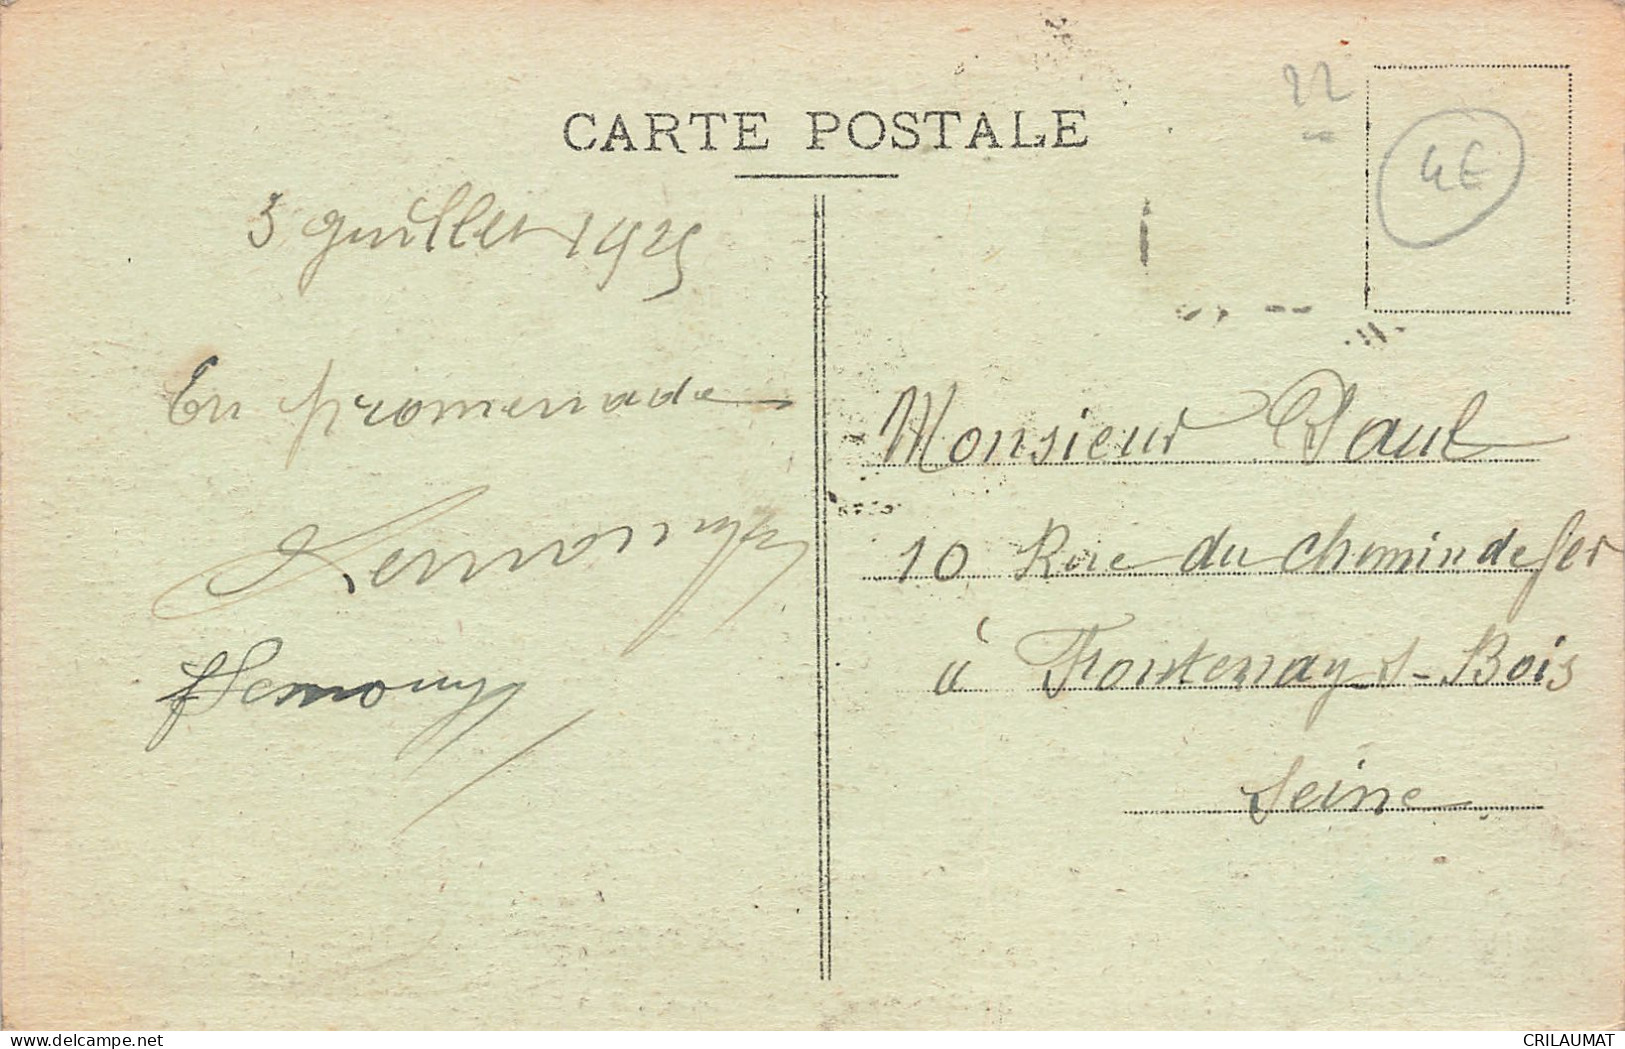 CARTE POSTALE
22
4E
3 Juillet 1925
En promenade
Monsieur Paul
10 Rue du chemin de fer
à Fontenay s-Bois
Seine
delcampe.net
CRILAUMAT